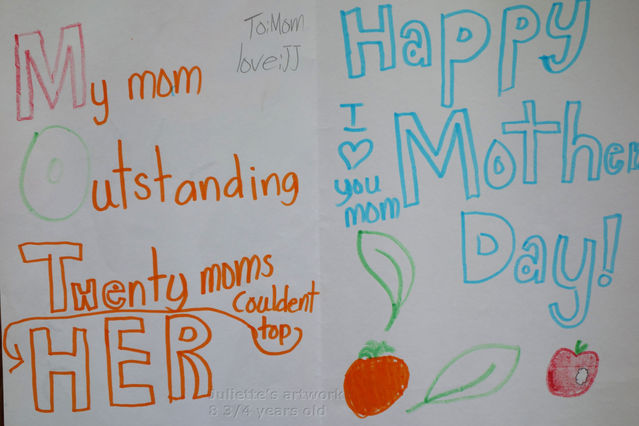 To: Mom
love: JJ
My mom
Outstanding
Twenty moms
Couldent
top
HER
Happy
Mother
Day!
I
♡
you
mom
Juliette's artwork
8 3/4 years old